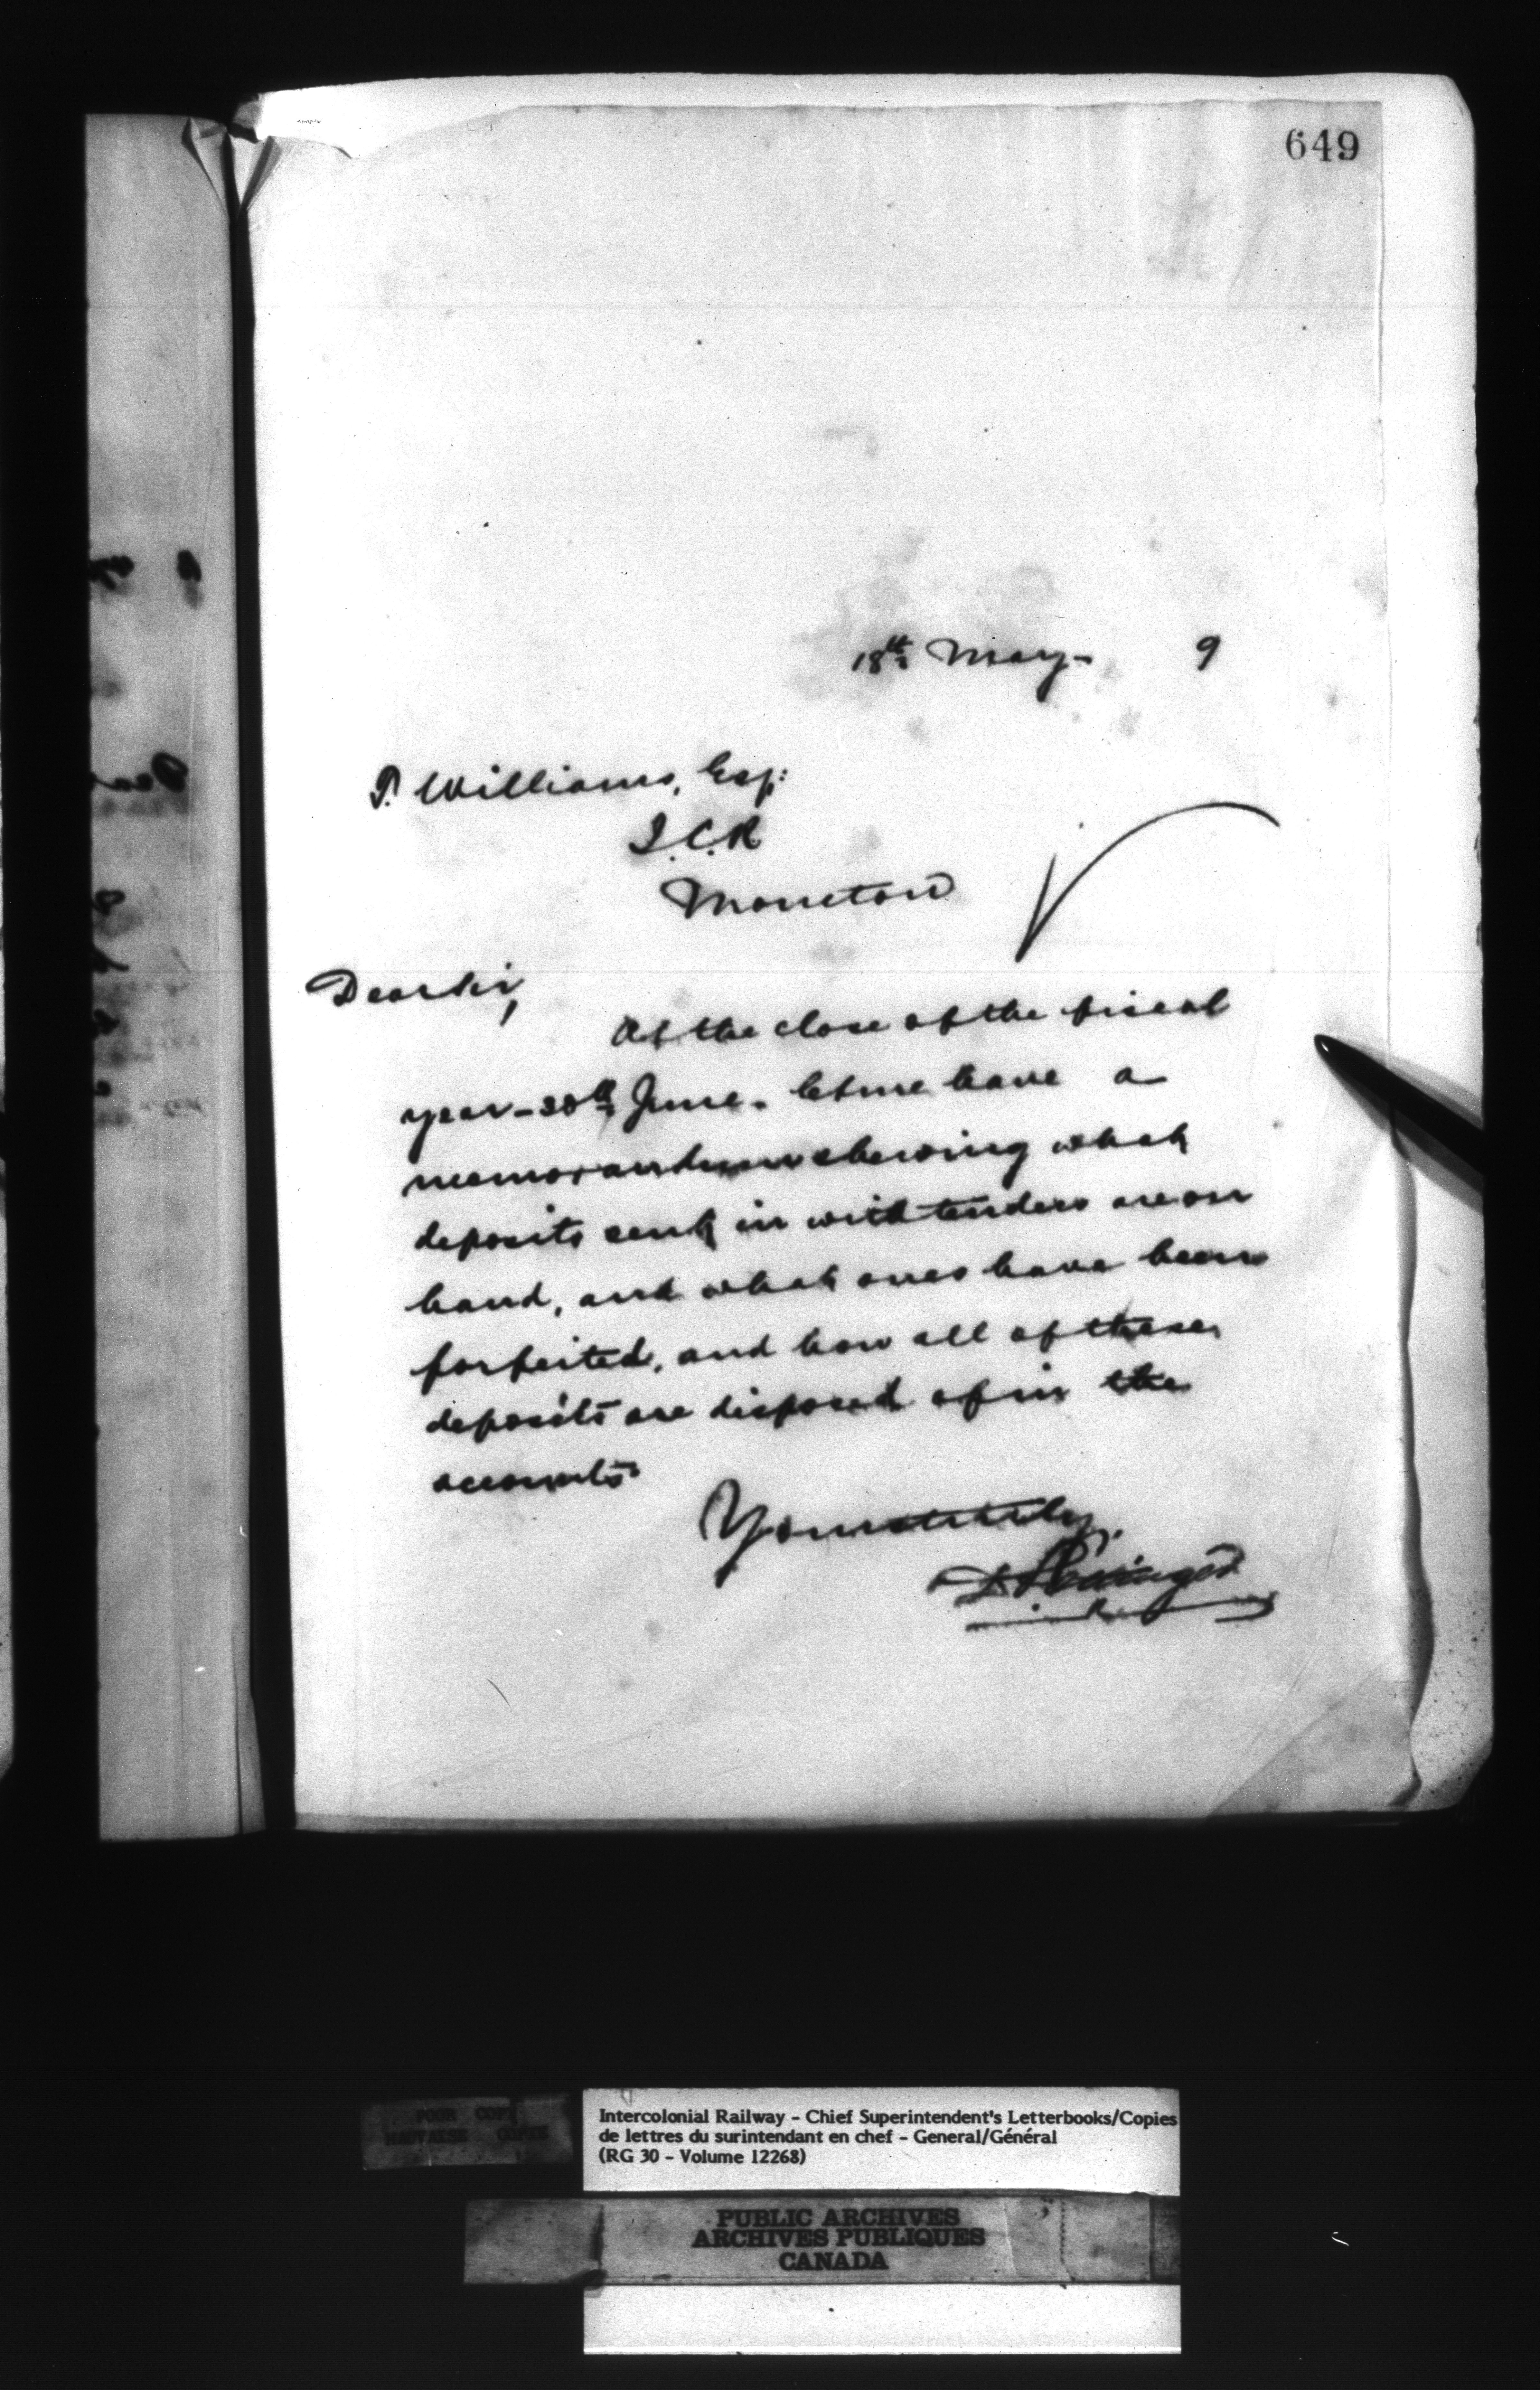 649
18th May - 9
T. Williams, Esq:
I.C.R
Moncton
Dear Sir,
At the close of the fiscal
year - 30th June. let me have a
memorandum shewing what
deposits sent in with tenders are on
hand, and what ones have been
forfeited, and how all of these
deposits are disposed of in the
accounts
Yours truly,
D. Pottinger
POOR COPY
MAUVAISE COPIE
Intercolonial Railway - Chief Superintendent's Letterbooks/Copies
de lettres du surintendant en chef - General/Général
(RG 30 - Volume 12268)
PUBLIC ARCHIVES
ARCHIVES PUBLIQUES
CANADA